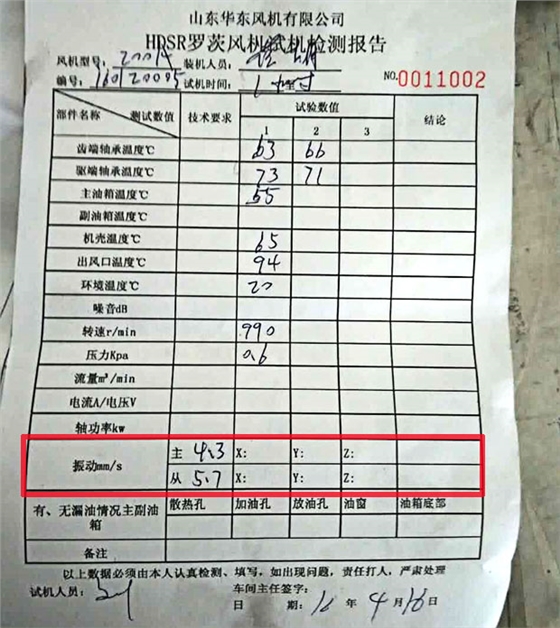 山东华东风机有限公司
HDSR罗茨风机试机检测报告
风机型号: 200 装机人员:
编号: 160120005 试机时间: 1小时
NO.0011002
部件名称 测试数值 技术要求 试验数值 结论
1 2 3
齿端轴承温度℃ 63 66
驱端轴承温度℃ 73 71
主油箱温度℃ 65
副油箱温度℃
机壳温度℃ 65
出风口温度℃ 94
环境温度℃ 20
噪音dB
转速r/min 990
压力Kpa 0.6
流量m³/min
电流A/电压V
轴功率kw
振动mm/s 主 4.3 X: Y: Z:
从 5.7 X: Y: Z:
有、无漏油情况主副油箱 散热孔 加油孔 放油孔 油窗 油箱底部
备注
以上数据必须由本人认真检测、填写,如出现问题,责任打人,严肃处理
试机人员: 车间主任签字:
日 期: 16 年 4 月 16 日